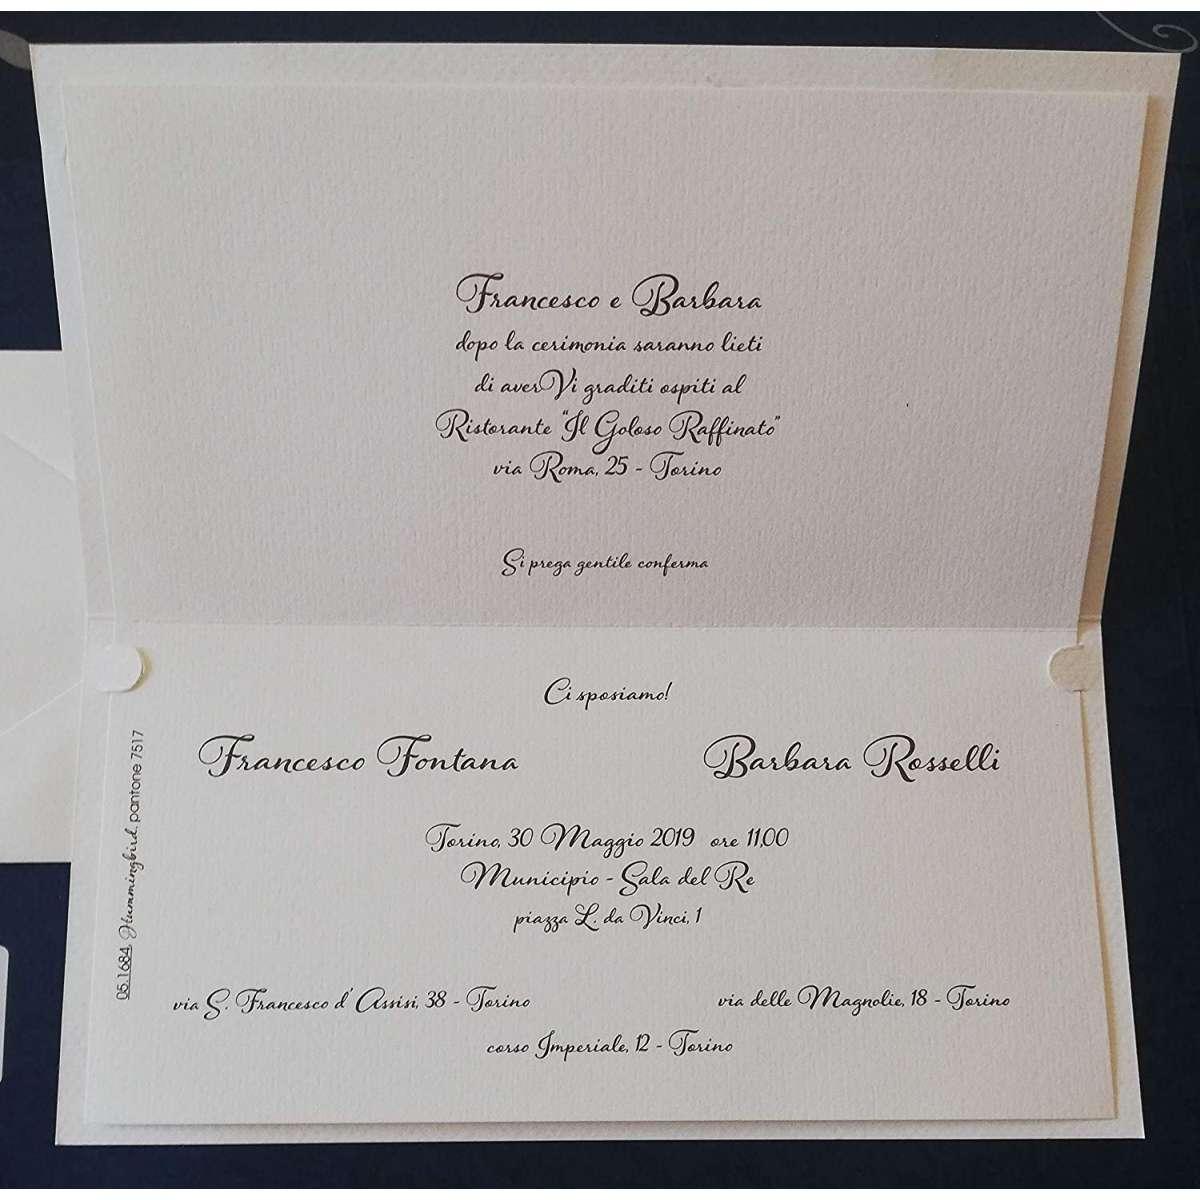 Francesco e Barbara
dopo la cerimonia saranno lieti
di averVi graditi ospiti al
Ristorante "Il Goloso Raffinato"
via Roma, 25 - Torino
Si prega gentile conferma
Ci sposiamo!
Francesco Fontana
Barbara Rosselli
Torino, 30 Maggio 2019 ore 11,00
Municipio - Sala del Re
piazza L. da Vinci, 1
via S. Francesco d' Assisi, 38 - Torino
via delle Magnolie, 18 - Torino
corso Imperiale, 12 - Torino
05.1684, Hummingbird, pantone 7517